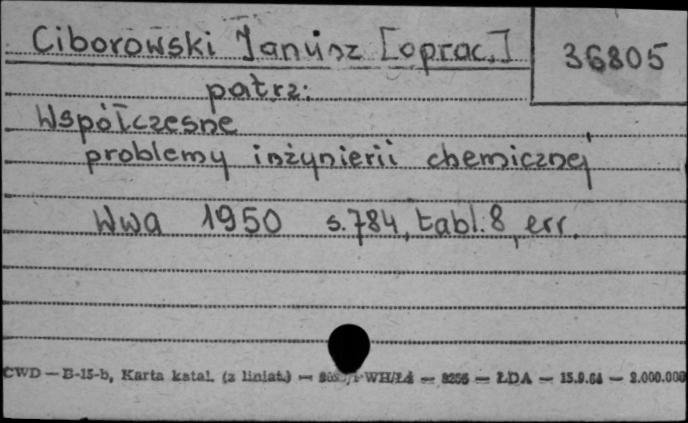 Ciborowski Janusz [oprac.] 36805
patrz:
Współczesne
problemy inżynierii chemicznej
Wwa 1950 s.784, tabl.8, err.
CWD — B-15-b, Karta katal. (z liniat.) — WH/Łd — 8255 — ŁDA — 15.9.64 — 2.000.000